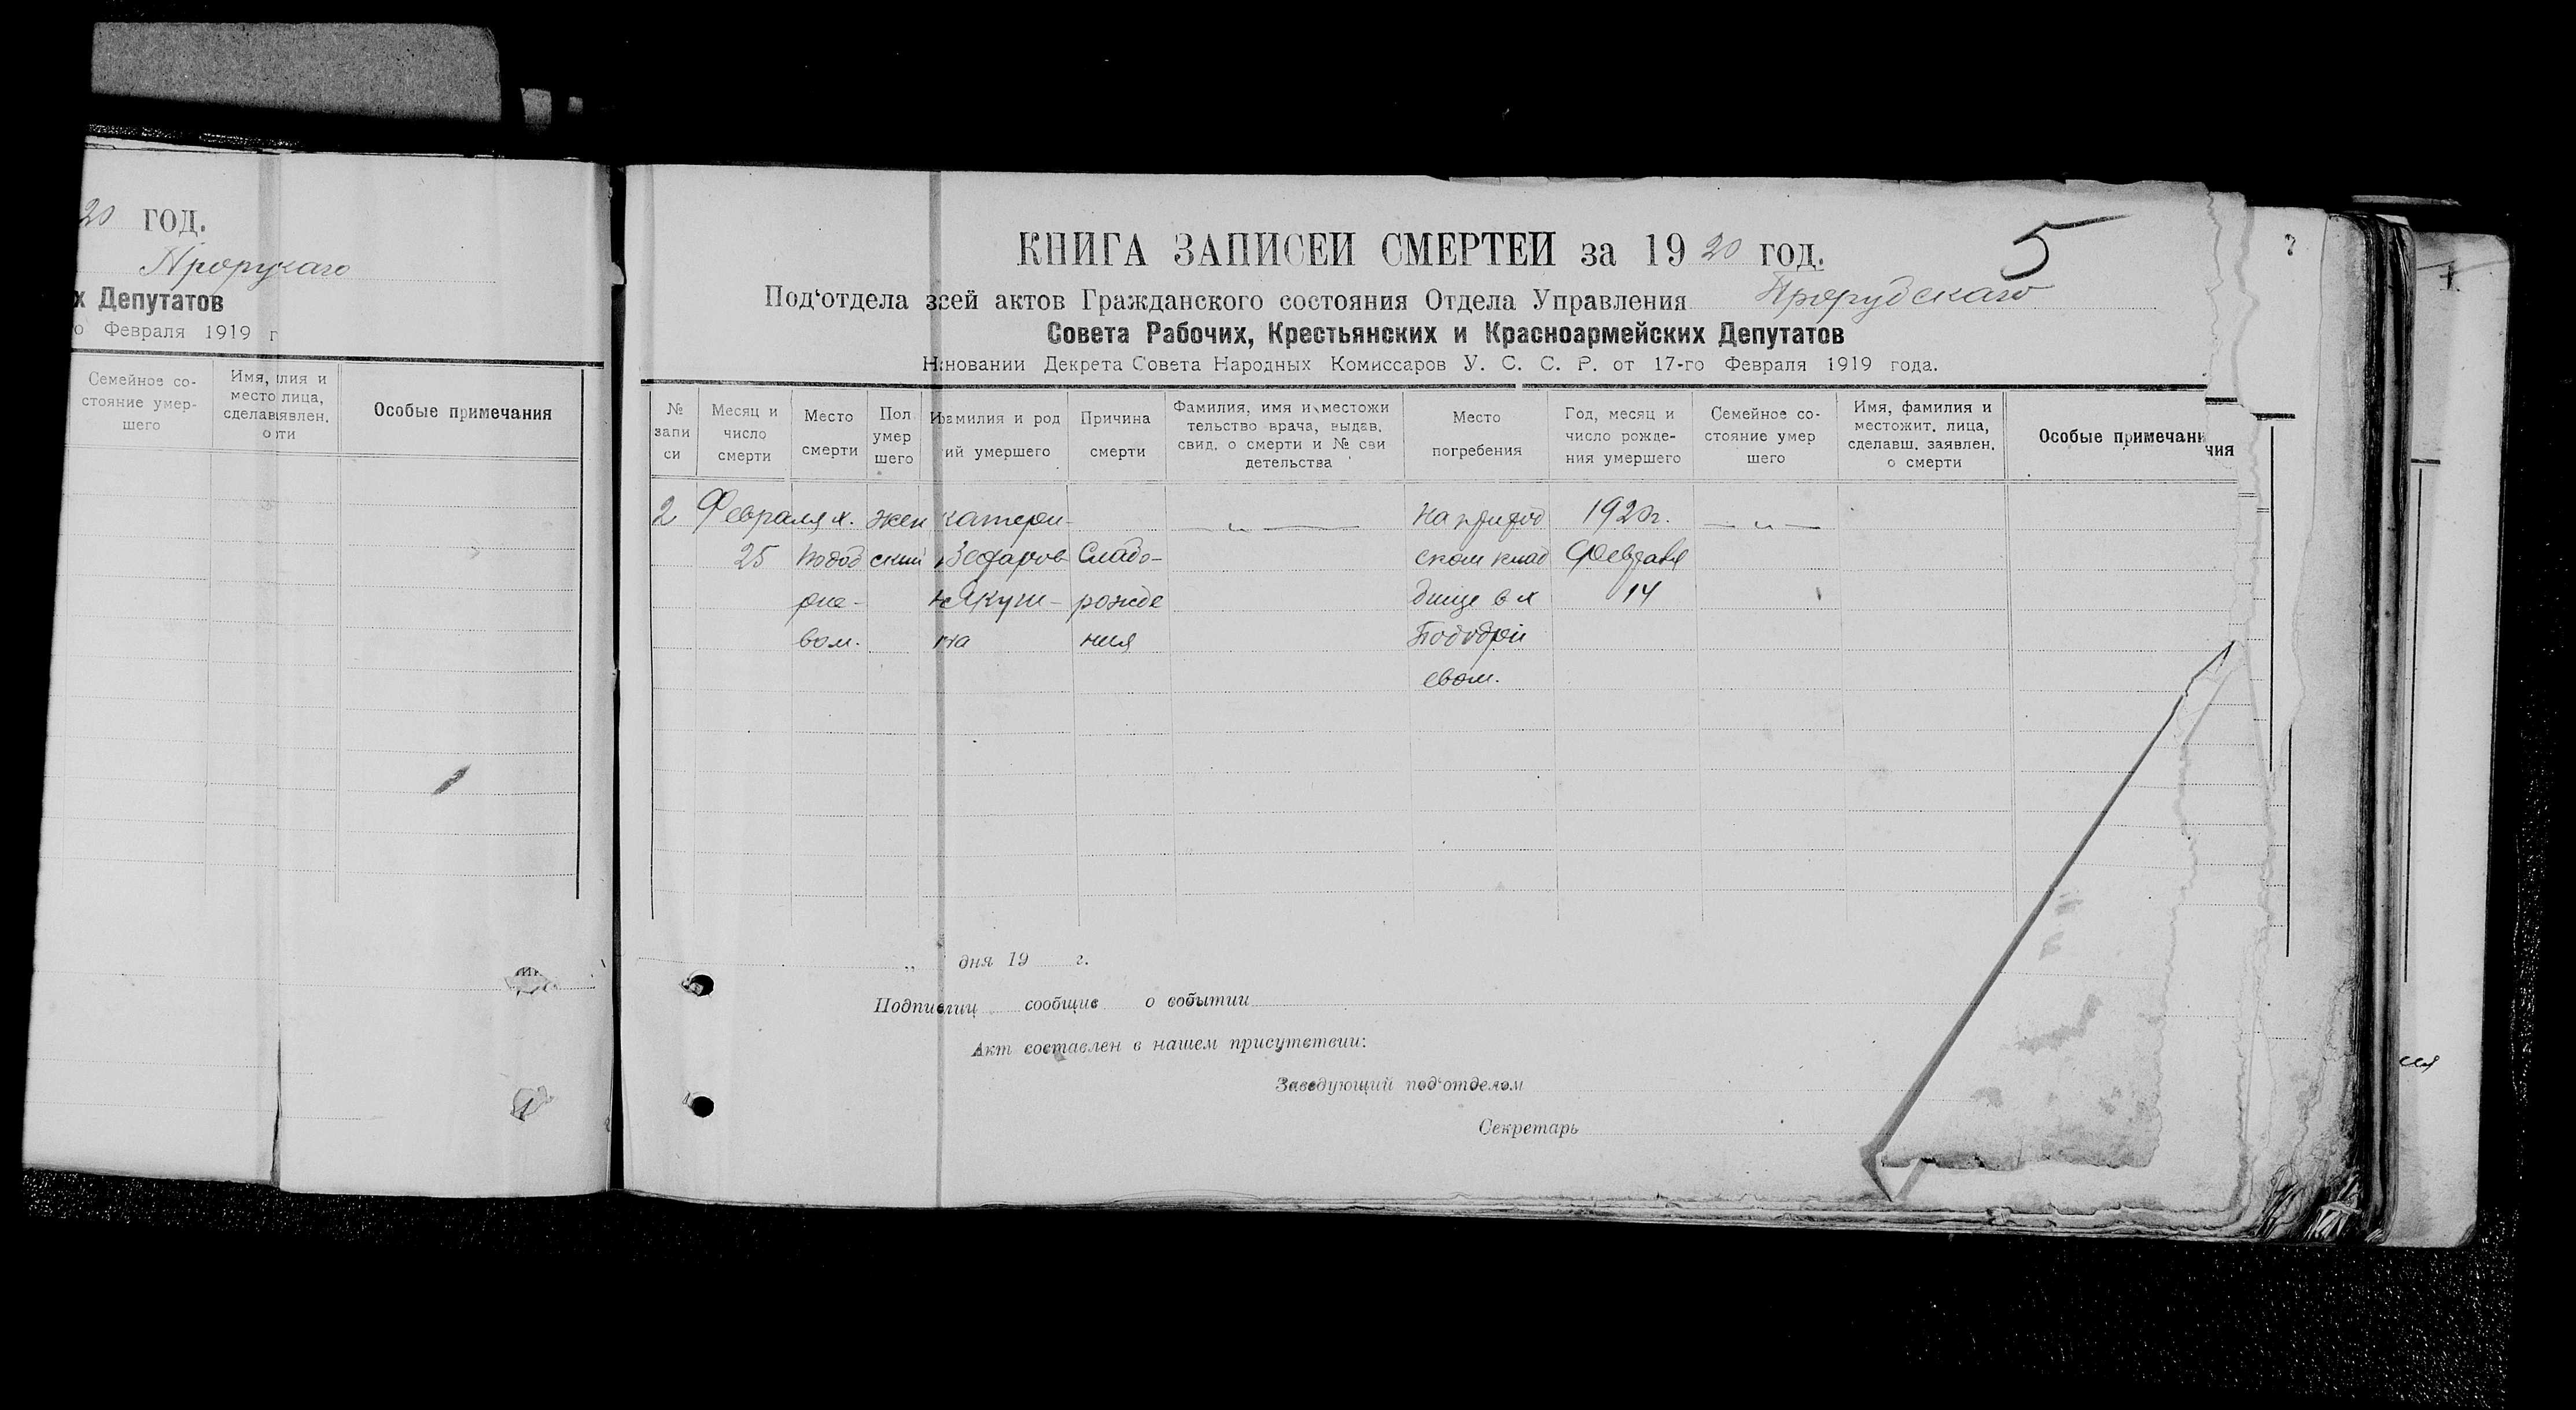 20 год.
х Депутатов
о Февраля 1919 г
Семейное со-
стояние умер-
шего
Имя, лия и
место лица,
сделав явлен.
о ти
Особые примечания
5
КНИГА ЗАПИСЕЙ СМЕРТЕЙ за 1920 год.
Под‘отдела зсей актов Гражданского состояния Отдела Управления
Совета Рабочих, Крестьянских и Красноармейских Депутатов
Нновании Декрета Совета Народных Комиссаров У. С. С. Р. от 17-го Февраля 1919 года.
№
запи
си
Месяц и
число
смерти
Место
смерти
Пол
умер
шего
амилия и род
ий умершего
Причина
смерти
Фамилия, имя и местожи
тельство врача, выдав.
свид. о смерти и № сви
детельства
Место
погребения
Год, месяц и
число рожде-
ния умершего
Семейное со-
стояние умер
шего
Имя, фамилия и
местожит. лица,
сделавш. заявлен.
о смерти
Особые примечани
ния
2 Февраля х. жен катери- На 1920г.
25 ский Слабо- ском клад Февраля
Якуш- рожде бище в х 14
вом. на ния
евом.
„ дня 19 г.
сообщив о событии
Акт составлен в нашем присутствии:
Заведующий под‘отделом
Секретарь